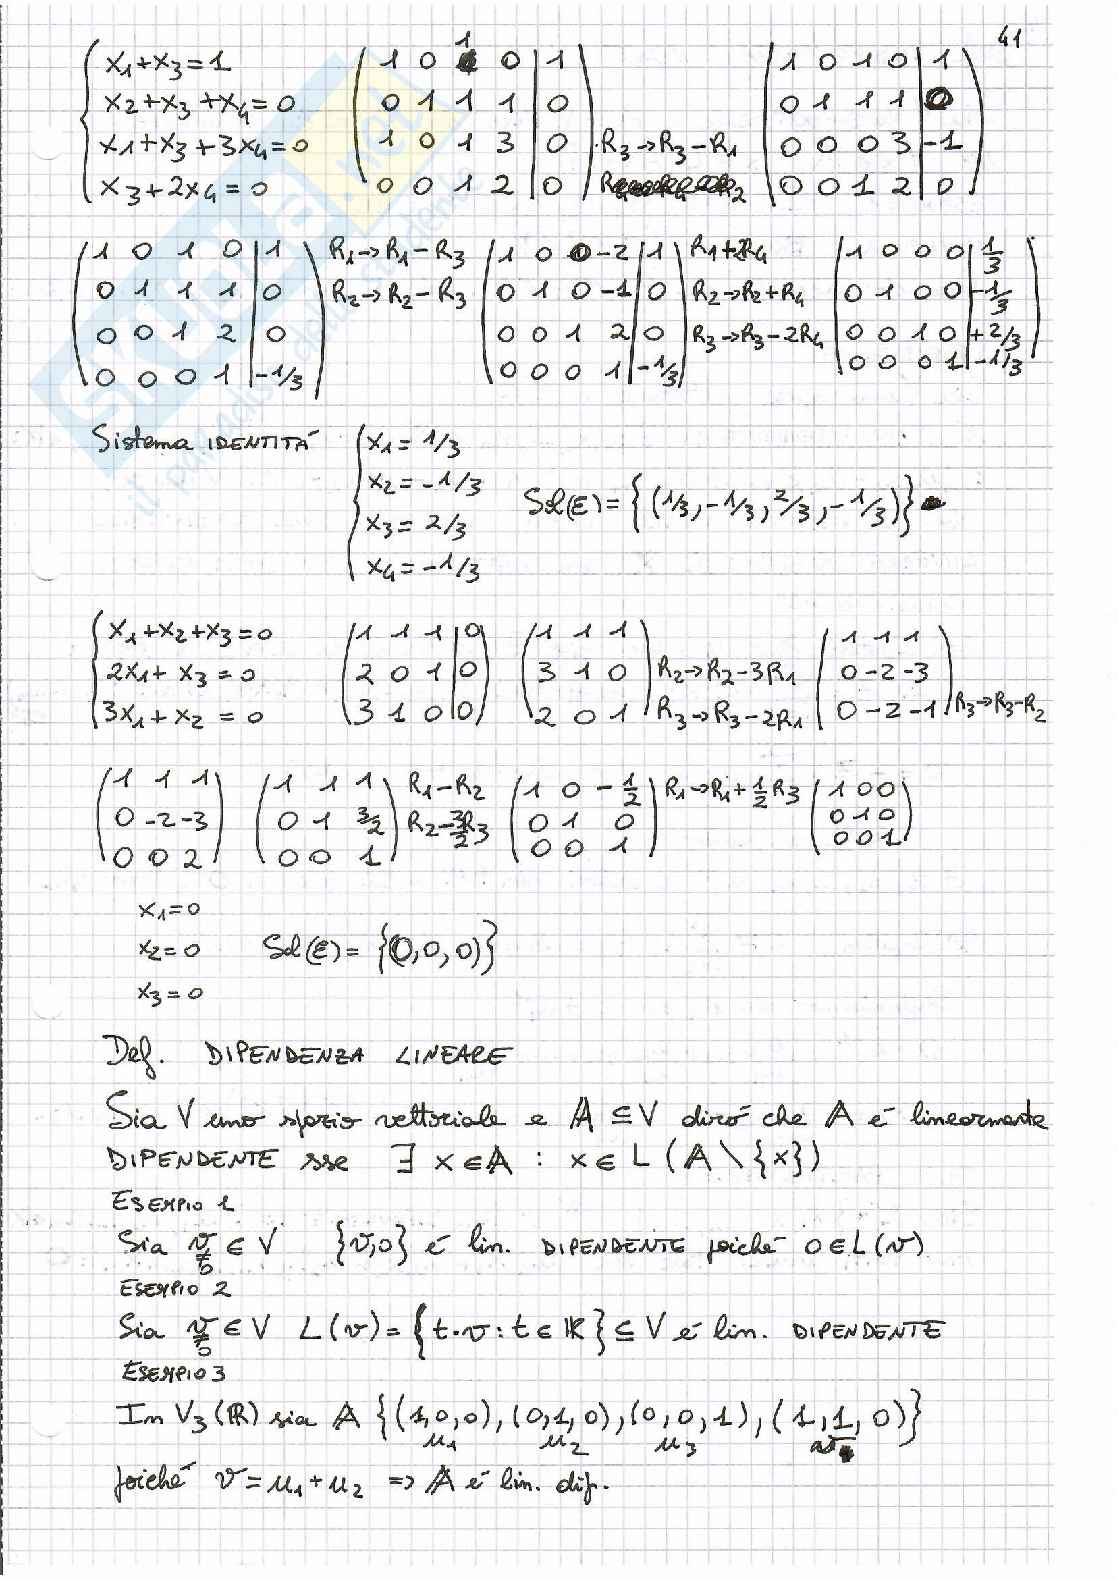 41
x₁+x₃=1
x₂+x₃+x₄=0
x₁+x₃+3x₄=0
x₃+2x₄=0
1 0 1 0 | 1
0 1 1 1 | 0
1 0 1 3 | 0 R₃→R₃-R₁
0 0 1 2 | 0
1 0 1 0 | 1
0 1 1 1 | 0
0 0 0 3 | -1
0 0 1 2 | 0
1 0 1 0 | 1 R₁→R₁-R₃
0 1 1 1 | 0 R₂→R₂-R₃
0 0 1 2 | 0
0 0 0 1 | -1/3
1 0 0 -2 | 1 R₁+2R₄
0 1 0 -1 | 0 R₂→R₂+R₄
0 0 1 2 | 0 R₃→R₃-2R₄
0 0 0 1 | -1/3
1 0 0 0 | 1/3
0 1 0 0 | -1/3
0 0 1 0 | +2/3
0 0 0 1 | -1/3
Sistema IDENTITÁ
x₁=1/3
x₂=-1/3
x₃=2/3
x₄=-1/3
Sol(E)={(1/3,-1/3,2/3,-1/3)}
x₁+x₂+x₃=0
2x₁+x₃=0
3x₁+x₂=0
1 1 1 | 0
2 0 1 | 0
3 1 0 | 0
1 1 1
3 1 0 R₂→R₂-3R₁
2 0 1 R₃→R₃-2R₁
1 1 1
0 -2 -3
0 -2 -1 R₃→R₃-R₂
1 1 1
0 -2 -3
0 0 2
1 1 1 R₁-R₂
0 1 3/2 R₂-3/2R₃
0 0 1
1 0 -1/2 R₁→R₁+1/2R₃
0 1 0
0 0 1
1 0 0
0 1 0
0 0 1
x₁=0
x₂=0
x₃=0
Sol(E)={(0,0,0)}
Def. DIPENDENZA LINEARE
Sia V uno spazio vettoriale e 𝔸⊆V diró che 𝔸 é linearmente
DIPENDENTE sse ∃ x∈𝔸 : x∈L(𝔸\{x})
ESEMPIO 1
Sia v∈V {v,0} é lin. DIPENDENTE poiché 0∈L(v)
≠0
ESEMPIO 2
Sia v∈V L(v)={t·v:t∈ℝ}⊆V é lin. DIPENDENTE
≠0
ESEMPIO 3
In V₃(ℝ) sia 𝔸 {(1,0,0),(0,1,0),(0,0,1),(1,1,0)}
u₁ u₂ u₃ v
poiché v=u₁+u₂ => 𝔸 é lin. dip.